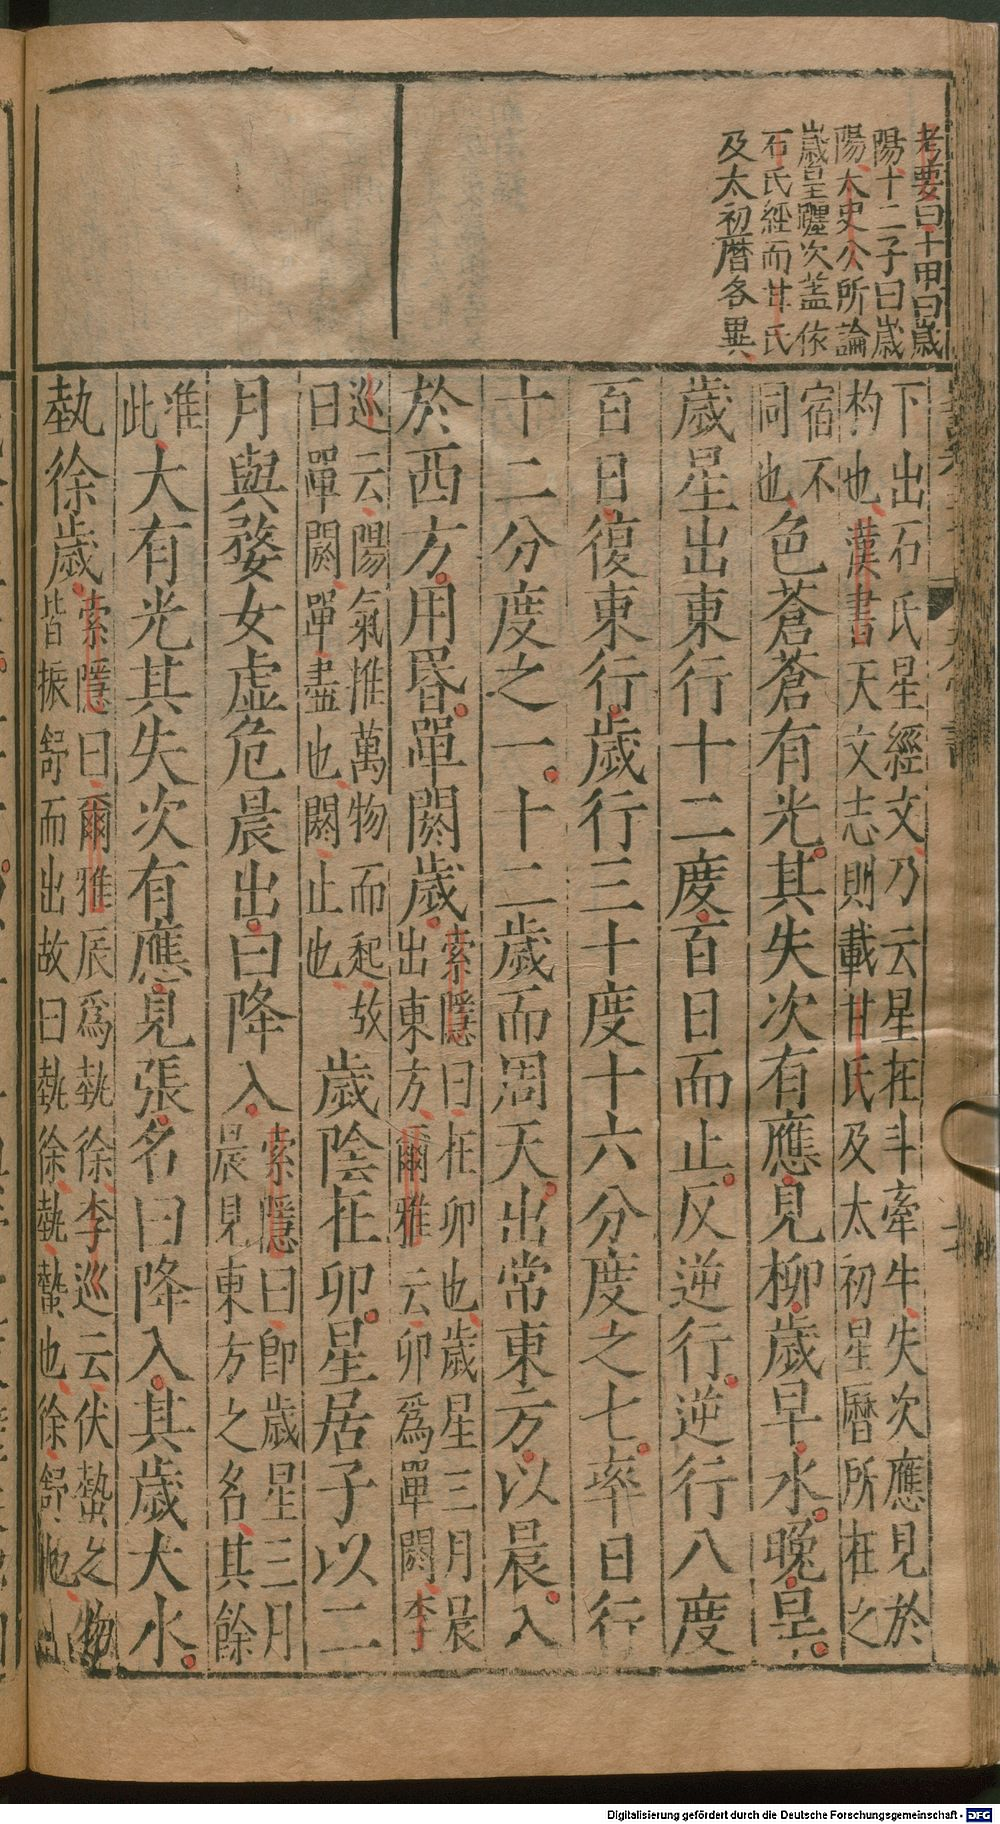 考要曰十甲曰歲
陽十二子曰歲
陽太史公所論
歲星躔次蓋依
石氏經而甘氏
及太初曆各異
下出石氏星經文乃云星在斗牽牛失次應見於
杓也漢書天文志則載甘氏及太初星曆所在之
宿不
同也
色蒼蒼有光其失次有應見柳歲早水晚旱
歲星出東行十二度百日而止反逆行逆行八度
百日復東行歲行三十度十六分度之七率日行
十二分度之一十二歲而周天出常東方以晨入
於西方用昬單閼歲
索隱曰在卯也歲星三月晨
出東方爾雅云卯爲單閼李
巡云陽氣推萬物而起故
曰單閼單盡也閼止也
歲陰在卯星居子以二
月與婺女虛危晨出曰降入
索隱曰卽歲星三月
晨見東方之名其餘
准
此
大有光其失次有應見張名曰降入其歲大水
執徐歲
索隱曰爾雅辰爲執徐李巡云伏蟄之物
皆振舒而出故曰執徐執蟄也徐舒也
Digitalisierung gefördert durch die Deutsche Forschungsgemeinschaft - DFG